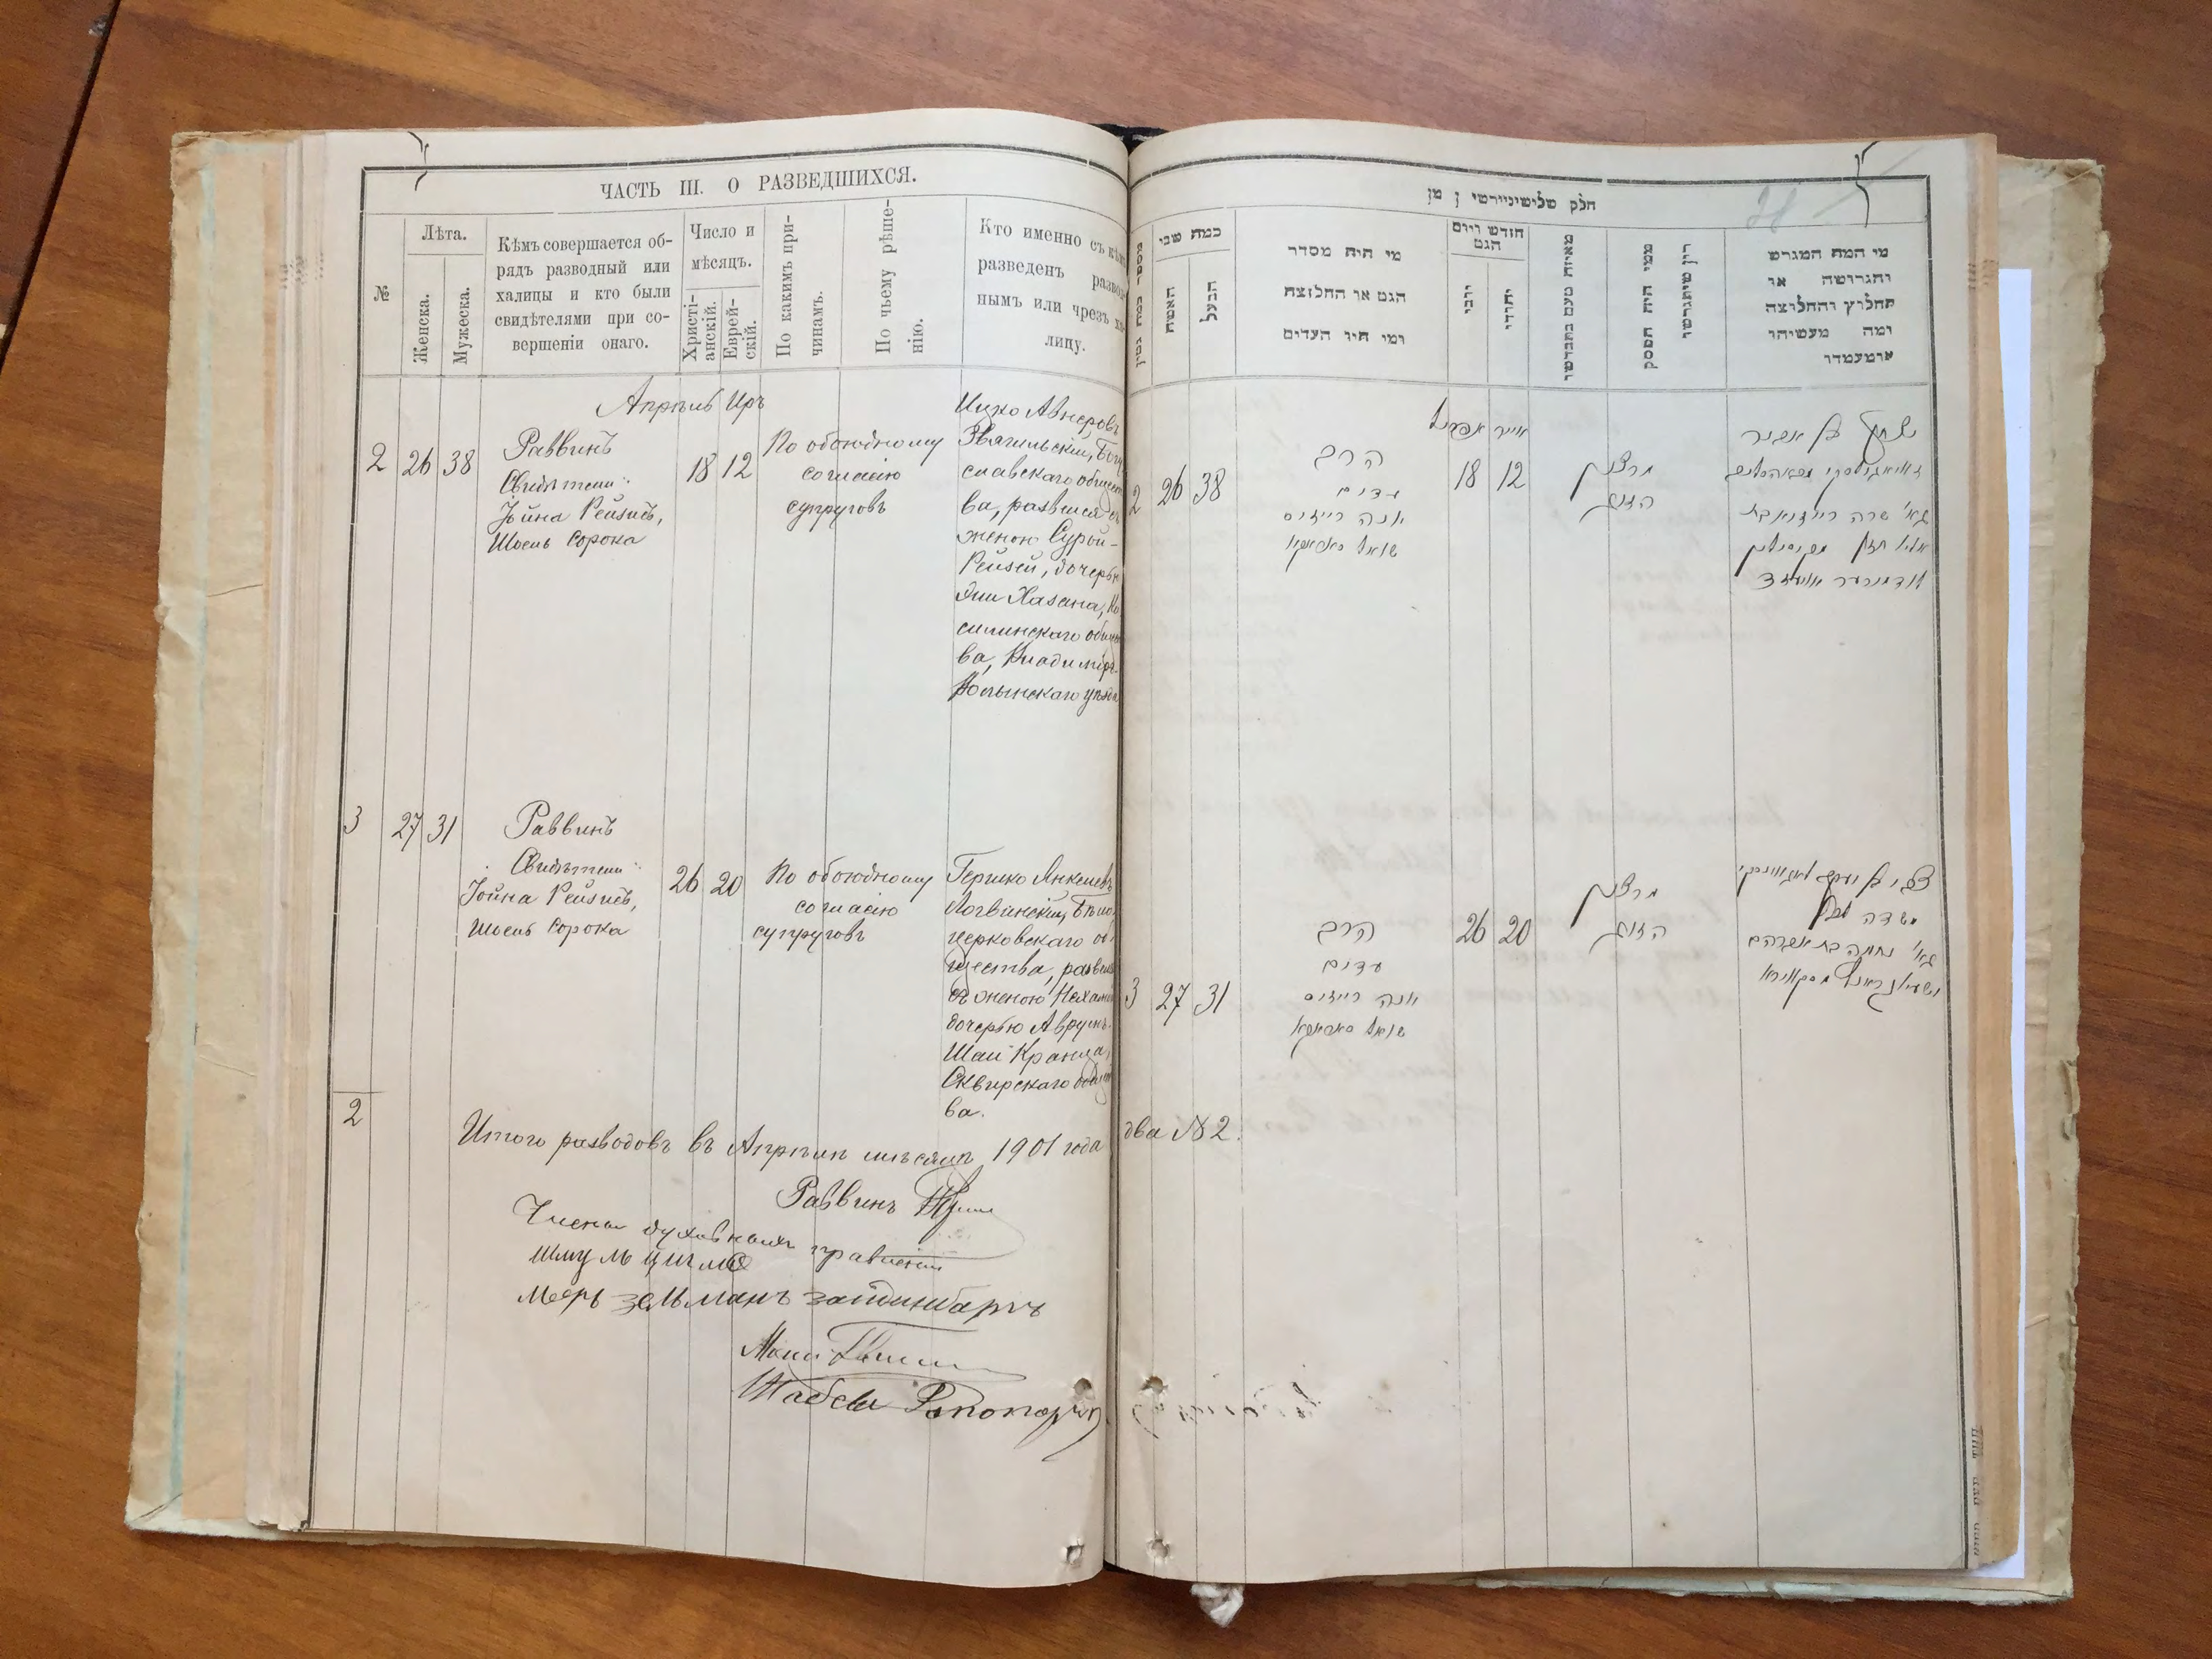 ЧАСТЬ III. О РАЗВЕДШИХСЯ.
№
Лѣта.
Женска.
Мужеска.
Кѣмъ совершается об-
рядъ разводный или
халицы и кто были
свидѣтелями при со-
вершеніи онаго.
Число и
мѣсяцъ.
Христі-
анскій.
Еврей-
скій.
По какимъ при-
чинамъ.
По чьему рѣше-
нію.
Кто именно съ кѣмъ
разведенъ развод-
нымъ или чрезъ ха-
лицу.
Апрѣль Иръ
2
26
38
Раввинъ
Свидѣтели:
Іойна Рейзисъ,
Шоель Сорока
18
12
По обоюдному
согласію
супруговъ
Ицко Авнеровъ
Звягильскій, Богу-
славскаго общест
ва, развелся съ
женою Сурой-
Рейзей, дочерью
Эли Хазана, Ки
силинскаго общест
ва, Владимір-
Волынскаго уѣзда
3
27
31
Раввинъ
Свидѣтели:
Іойна Рейзисъ,
Шоель Сорока
26
20
По обоюдному
согласію
супруговъ
Гершко Янкелевъ
Логвинскій, Бѣло
церковскаго об
щества, развелся
съ женою Нехамой
дочерью Аврумъ-
Шаи Кранца,
Сквирскаго общест
ва.
2
Итого разводовъ въ Апрѣлѣ мѣсяцѣ 1901 года два № 2.
Раввинъ
Члены духовнаго правленія
Шмуль
Меер Зельманъ Зайдинбаргъ
Шабси Рапопортъ
חלק שלישי
כמה שני
האשה
הבעל
מי היה מסדר
הגט או החלוצה
ומי היו העדים
חודש ויום
הגט
יהודי
מי המה המגרש
והגרושה או
החלוץ והחלוצה
ומה מעשיהו
ומעמדו
אייר אפריל
2
26
38
הרב
עדים
יונה רייזיס
שואל סאראקא
18
12
מרצון
הזוג
יצחק בן אבנר
3
27
31
הרב
עדים
יונה רייזיס
שואל סאראקא
26
20
מרצון
הזוג
צבי בן יעקב לאגווינסקי